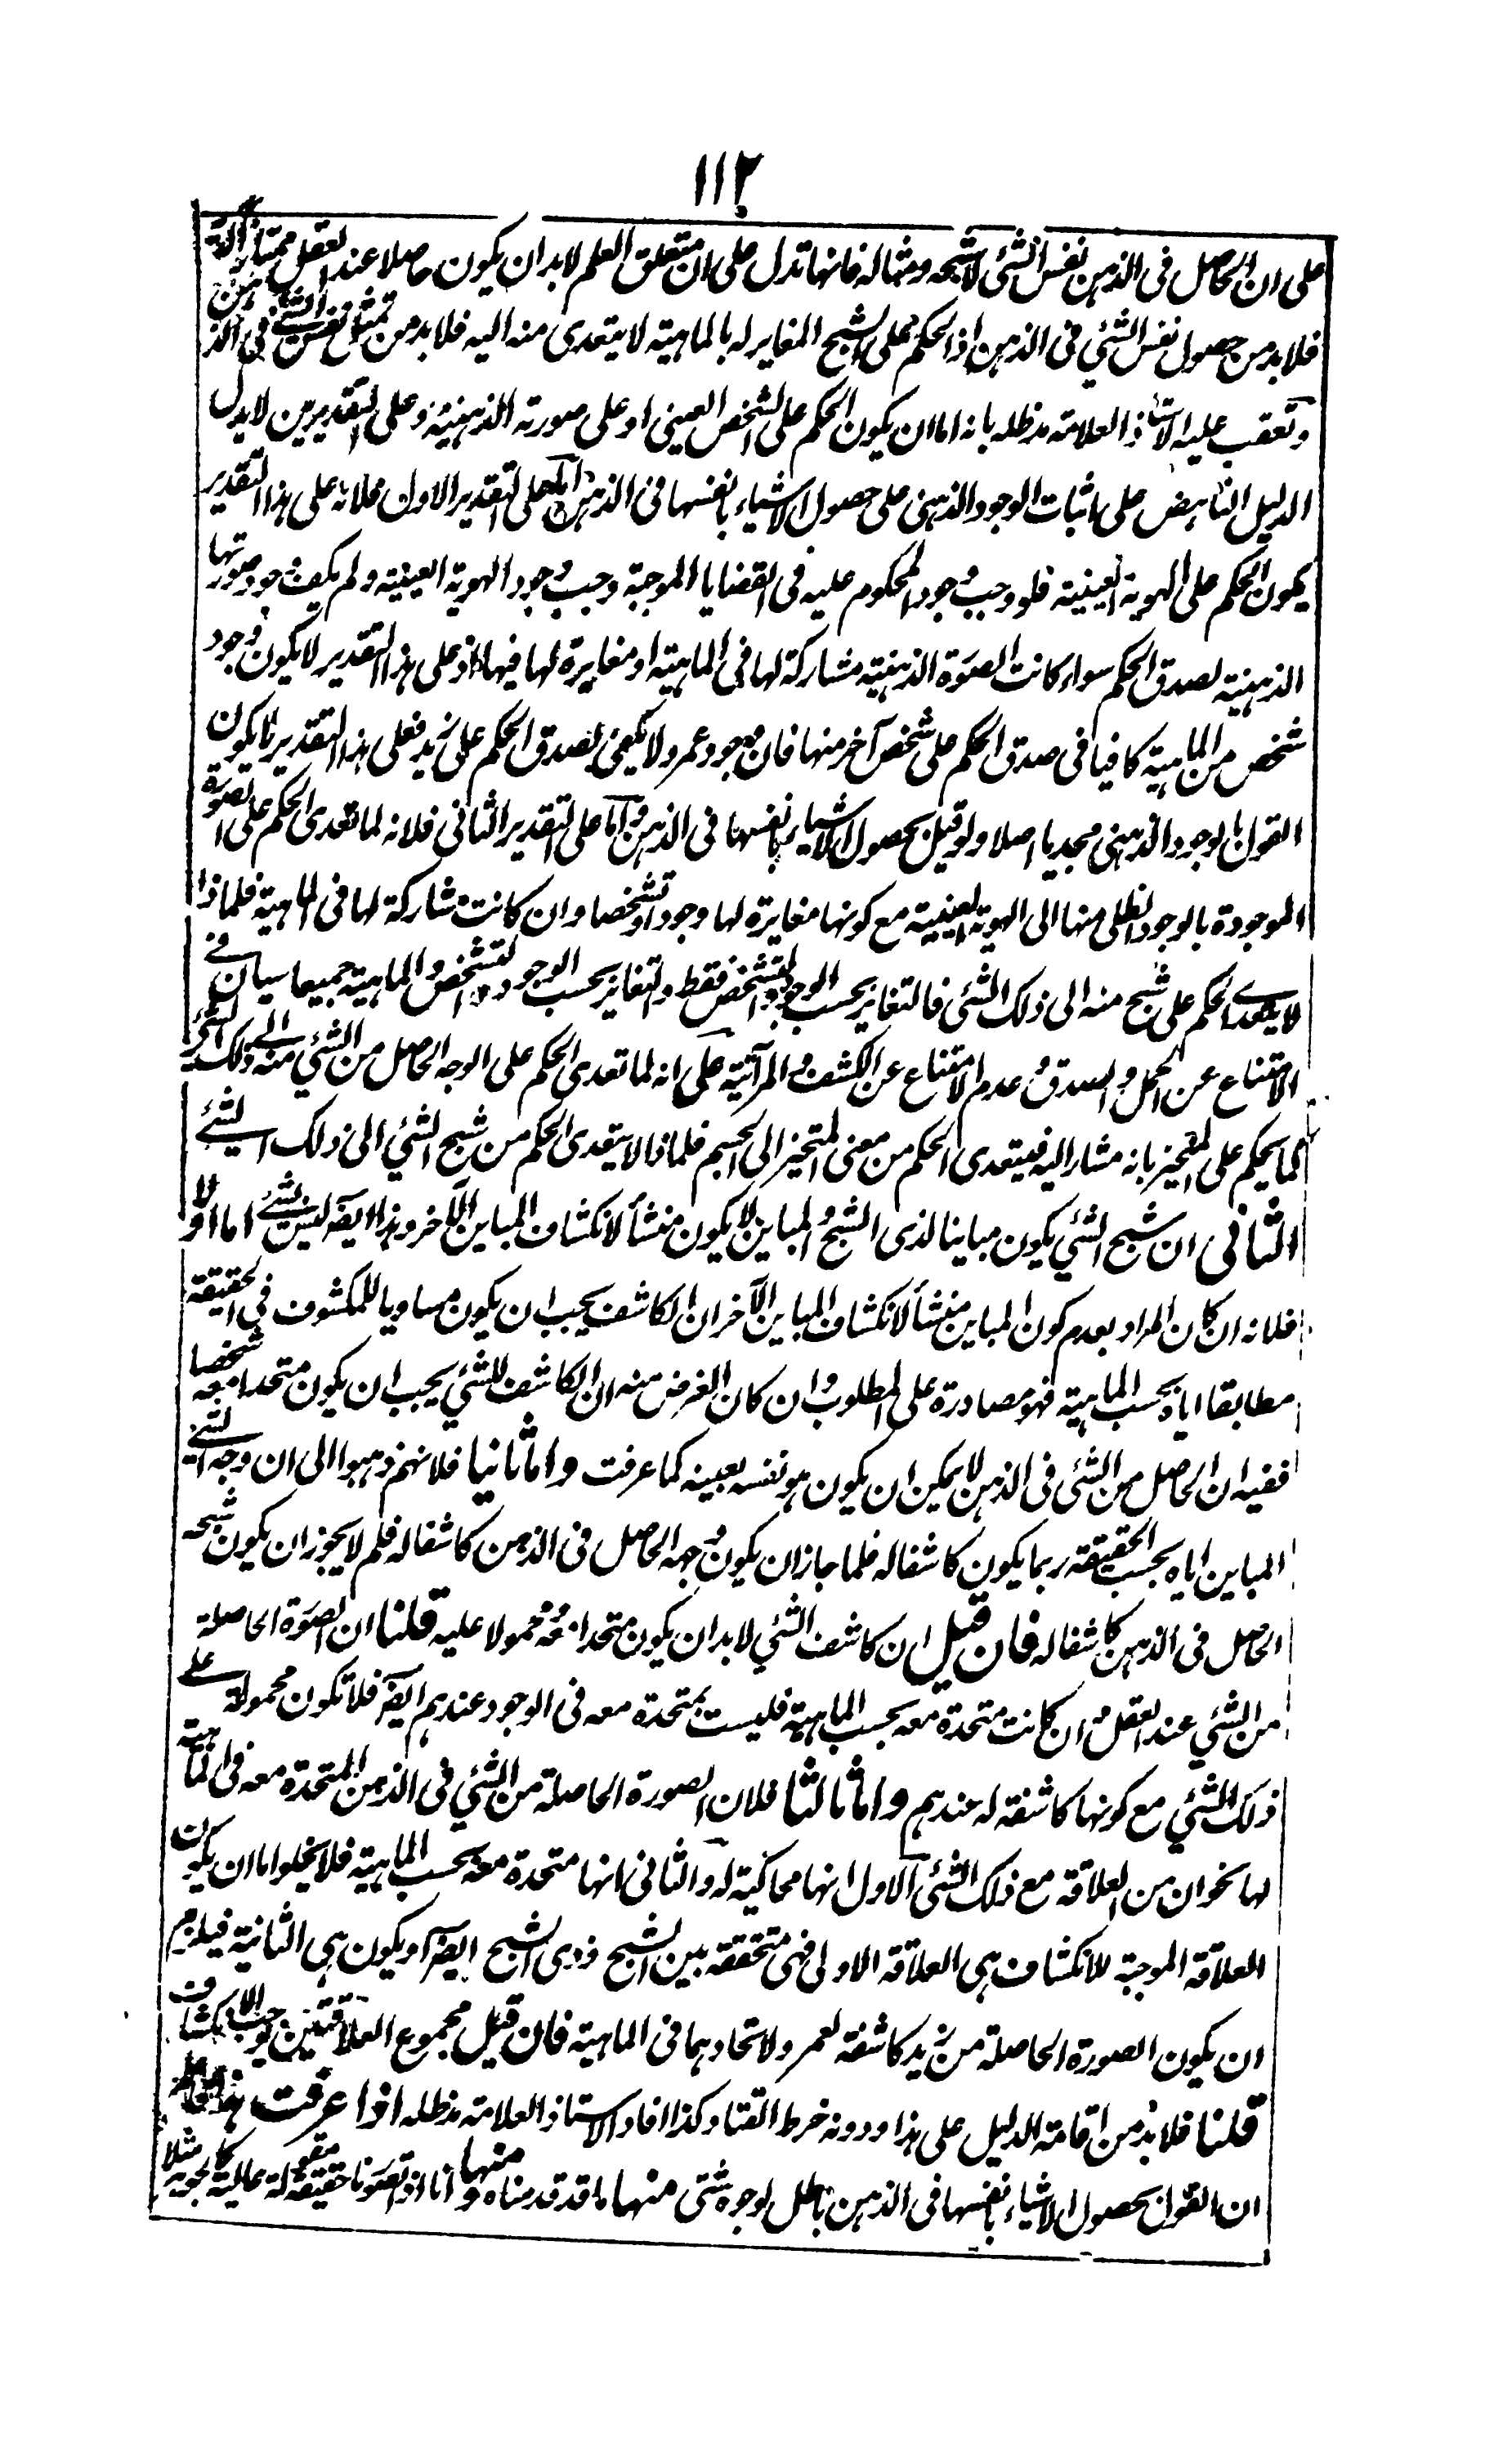 ١١٢
على ان الحاصل فى الذهن نفس الشئ لا شبحه ومثاله فانها تدل على ان متعلق العلم لابد ان يكون حاصلا عند العقل ممتازا
فلابد من حصول نفس الشئ فى الذهن اذ الحكم على الشبح المغاير له بالماهية لا يتعدى منه اليه فلابد من تمثل نفس الشئ فى الذهن
وتعقب عليه الاستاذ العلامة مدظله بانه اما ان يكون الحكم على الشخص العينى او على صورته الذهنية وعلى التقديرين لا يدل
الدليل الناهض على اثبات الوجود الذهنى على حصول الاشياء بانفسها فى الذهن اما على التقدير الاول فلانه على هذا التقدير
يكون الحكم على الهوية العينية فلو وجب وجود المحكوم عليه فى القضايا الموجبة وجب وجود الهوية العينية ولم يكف وجود صورتها
الذهنية لصدق الحكم سواء كانت الصورة الذهنية مشاركة لها فى الماهية او مغايرة لها فيها اذ على هذا التقدير لا يكون وجود
شخص من الماهية كافيا فى صدق الحكم على شخص آخر منها فان وجود عمرو لا يكفى لصدق الحكم على زيد فعلى هذا التقدير لا يكون
القول بالوجود الذهنى مجديا اصلا ولو قيل بحصول الاشياء بانفسها فى الذهن واما على التقدير الثانى فلانه لما تعدى الحكم على الصورة
الموجودة بالوجود الظلى منها الى الهوية العينية مع كونها مغايرة لها وجودا وتشخصا وان كانت مشاركة لها فى الماهية فلماذا
لا يتعدى الحكم على شبح منه الى ذلك الشئ فالتغاير بحسب الوجود والتشخص فقط والتغاير بحسب الوجود والتشخص والماهية جميعا سيان فى
الامتناع عن الحمل والصدق وعدم الامتناع عن الكشف والمرآتية على انه لما تعدى الحكم على الوجه الحاصل من الشئ منه الى ذلك الشئ
كما يحكم على المتحيز بانه مشار اليه فيتعدى الحكم من معنى المتحيز الى الجسم فلماذا لا يتعدى الحكم من شبح الشئ الى ذلك الشئ
الثانى ان شبح الشئ يكون مباينا لذى الشبح والمباين لا يكون منشأ لانكشاف المباين الآخر وهذا ايضا ليس بشئ اما اولا
فلانه ان كان المراد بعدم كون المباين منشأ لانكشاف المباين الآخر ان الكاشف يجب ان يكون مساويا للمكشوف فى الحقيقة
مطابقا اياه بحسب الماهية فهو مصادرة على المطلوب وان كان الغرض منه ان الكاشف للشئ يجب ان يكون متحدا معه شخصا
ففيه ان الحاصل من الشئ فى الذهن لا يمكن ان يكون هو نفسه بعينه كما عرفت واما ثانيا فلانهم ذهبوا الى ان وجه الشئ
المباين اياه بحسب الحقيقة ربما يكون كاشفا له فلما جاز ان يكون وجهه الحاصل فى الذهن كاشفا له فلم لا يجوز ان يكون شبحه
الحاصل فى الذهن كاشفا له فان قيل ان كاشف الشئ لابد ان يكون متحدا معه ومحمولا عليه قلنا ان الصورة الحاصلة
من الشئ عند العقل وان كانت متحدة معه بحسب الماهية فليست بمتحدة معه فى الوجود عندهم ايضا فلا تكون محمولة على
ذلك الشئ مع كونها كاشفة له عندهم واما ثالثا فلان الصورة الحاصلة من الشئ فى الذهن المتحدة معه فى الماهية
لها نحوان من العلاقة مع ذلك الشئ الاول انها محاكية له والثانى انها متحدة معه بحسب الماهية فلا يخلو اما ان يكون
العلاقة الموجبة للانكشاف هى العلاقة الاولى فهى متحققة بين الشبح وذى الشبح ايضا او يكون هى الثانية فيلزم
ان يكون الصورة الحاصلة من زيد كاشفة لعمرو لاتحادهما فى الماهية فان قيل مجموع العلاقتين يوجب الانكشاف
قلنا فلابد من اقامة الدليل على هذا ودونه خرط القتاد كذا افاد الاستاذ العلامة مدظله اذا عرفت هذا
ان القول بحصول الاشياء بانفسها فى الذهن باطل لوجوه شتى منها ما قد قدمناه ومنها انا اذا تصورنا حقيقة مقولة عالية كالجوهر مثلا